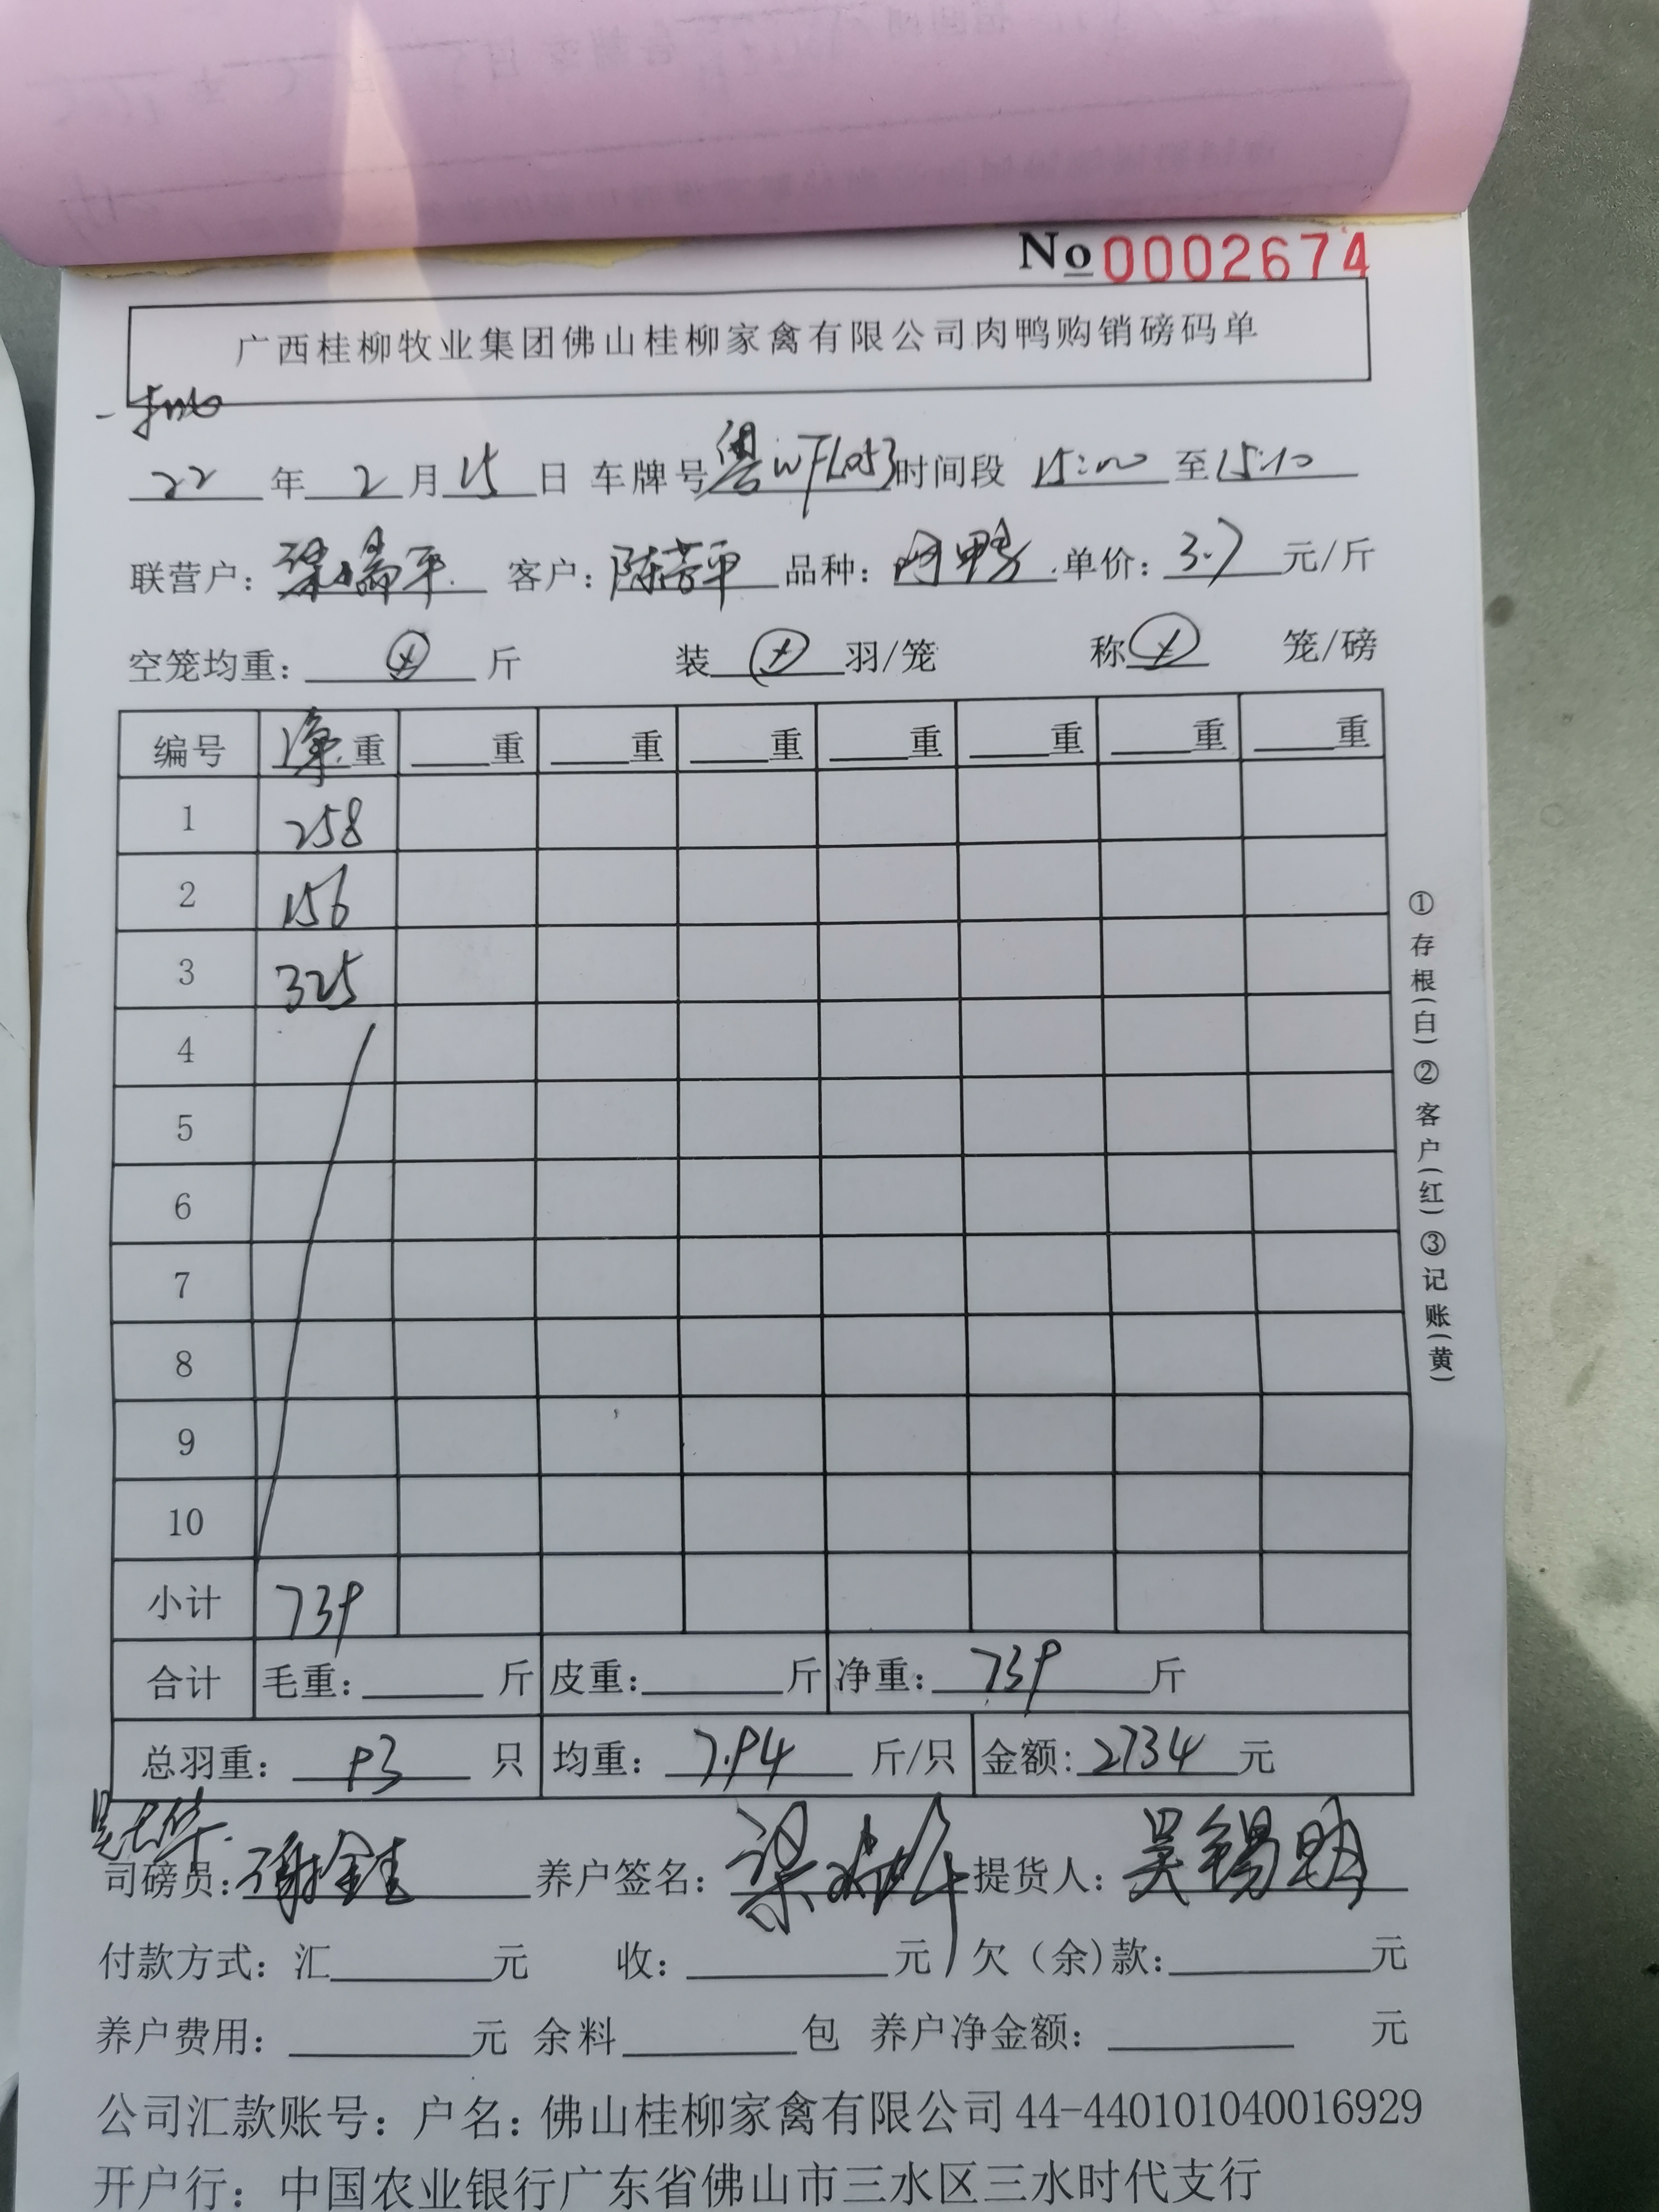 No 0002674
广西桂柳牧业集团佛山桂柳家禽有限公司肉鸭购销磅码单
22 年 2 月 15 日 车牌号 粤WFL053 时间段 15:00 至 15:10
联营户: 梁瑞平 客户: 陈芳平 品种: 肉鸭 单价: 3.7 元/斤
空笼均重: 斤 装 羽/笼 称 笼/磅
编号 净重 重 重 重 重 重 重 重
1 258
2 156
3 325
4
5
6
7
8
9
10
小计 739
合计 毛重: 斤 皮重: 斤 净重: 739 斤
总羽重: 93 只 均重: 7.94 斤/只 金额: 2734 元
司磅员: 谢金 养户签名: 梁 提货人: 吴锡明
付款方式: 汇 元 收: 元 欠(余)款: 元
养户费用: 元 余料 包 养户净金额: 元
公司汇款账号: 户名: 佛山桂柳家禽有限公司 44-440101040016929
开户行: 中国农业银行广东省佛山市三水区三水时代支行
①存根(白)②客户(红)③记账(黄)